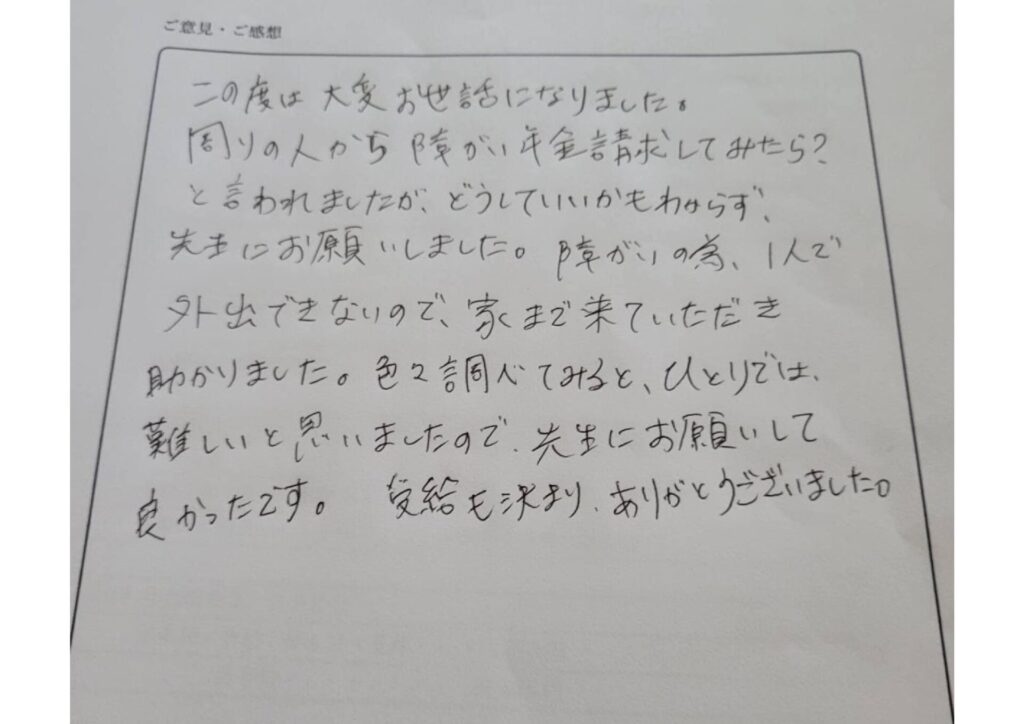 ご意見・ご感想
この度は大変お世話になりました。
周りの人から障がい年金請求してみたら?
と言われましたが、どうしていいかもわからず、
先生にお願いしました。障がいの為、1人で
外出できないので、家まで来ていただき
助かりました。色々調べてみると、ひとりでは、
難しいと思いましたので、先生にお願いして
良かったです。 受給も決まり、ありがとうございました。